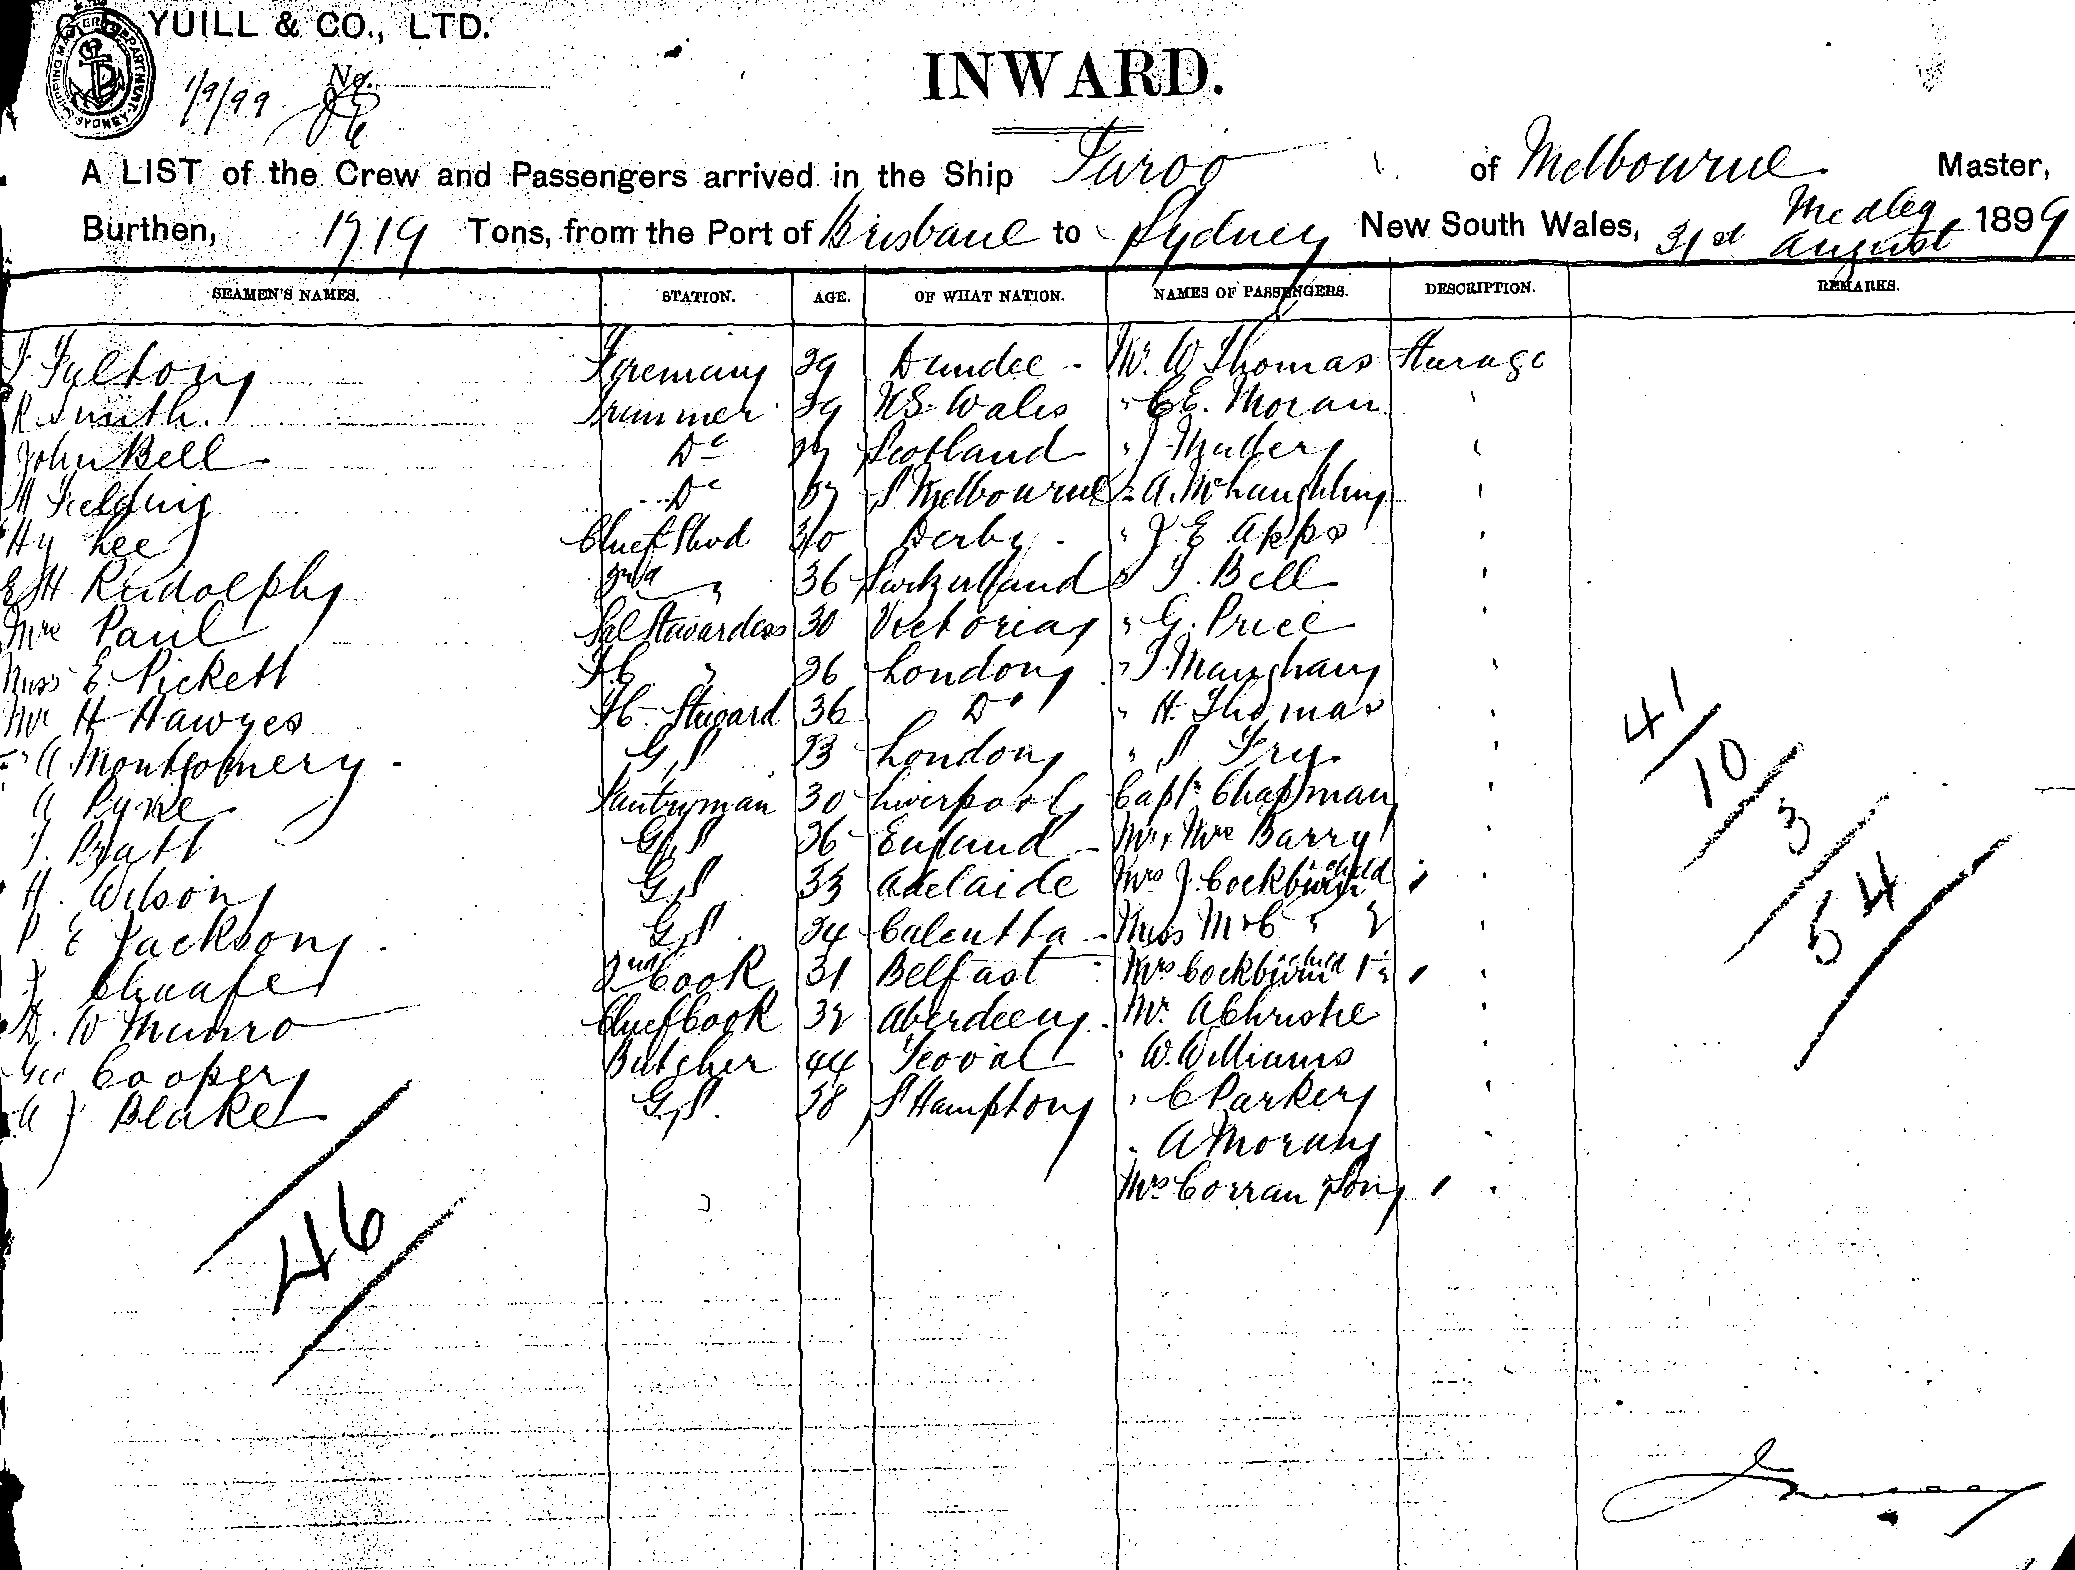 YUILL & CO., LTD.
1/9/99 No.
INWARD.
A LIST of the Crew and Passengers arrived in the Ship Taroo of Melbourne Master,
Medley
Burthen, 1919 Tons, from the Port of Brisbane to Sydney New South Wales, 31st August 1899
SEAMEN'S NAMES. STATION. AGE. OF WHAT NATION. NAMES OF PASSENGERS. DESCRIPTION. REMARKS.
Fulton Fireman 29 Dundee Mr. W Thomas
R Smith Trimmer 29 N S Wales " C E. Moran
John Bell Do 27 Scotland " J
M Fielding Do S Melbourne " A.
Hy Lee Chief Stwd 30 Derby " J E Apps
E H Rudolph 2nd " 36 Switzerland " T. Bell
Mrs Paul Sal Stewardess 30 Victoria " G. Price
Miss E. Pickett F.C " 26 London " T. Maughan
Mr H Hawyes F.C. Steward 36 Do " H. Thomas
" A Montgomery G,S 23 London " S Fry
A Pyke Pantryman 30 Liverpool Capt. Chapman
T. Pratt G,S 26 England Mr & Mrs Barry
H. Wilson G,S 33 Adelaide Mrs J. Cockburn child
P E Jackson G,S 24 Calcutta Miss M & C " 2
J 2nd Cook 31 Belfast Mrs Cockburn child
D. W Munro Chief Cook 32 Aberdeen Mr. A Christie
Geo Cooper Butcher 44 Yeoval " W. Williams
A J Blake G,S. 38 S Hampton " C Parker
" A Moran
Mrs Corran & Son
46
41
10
3
54